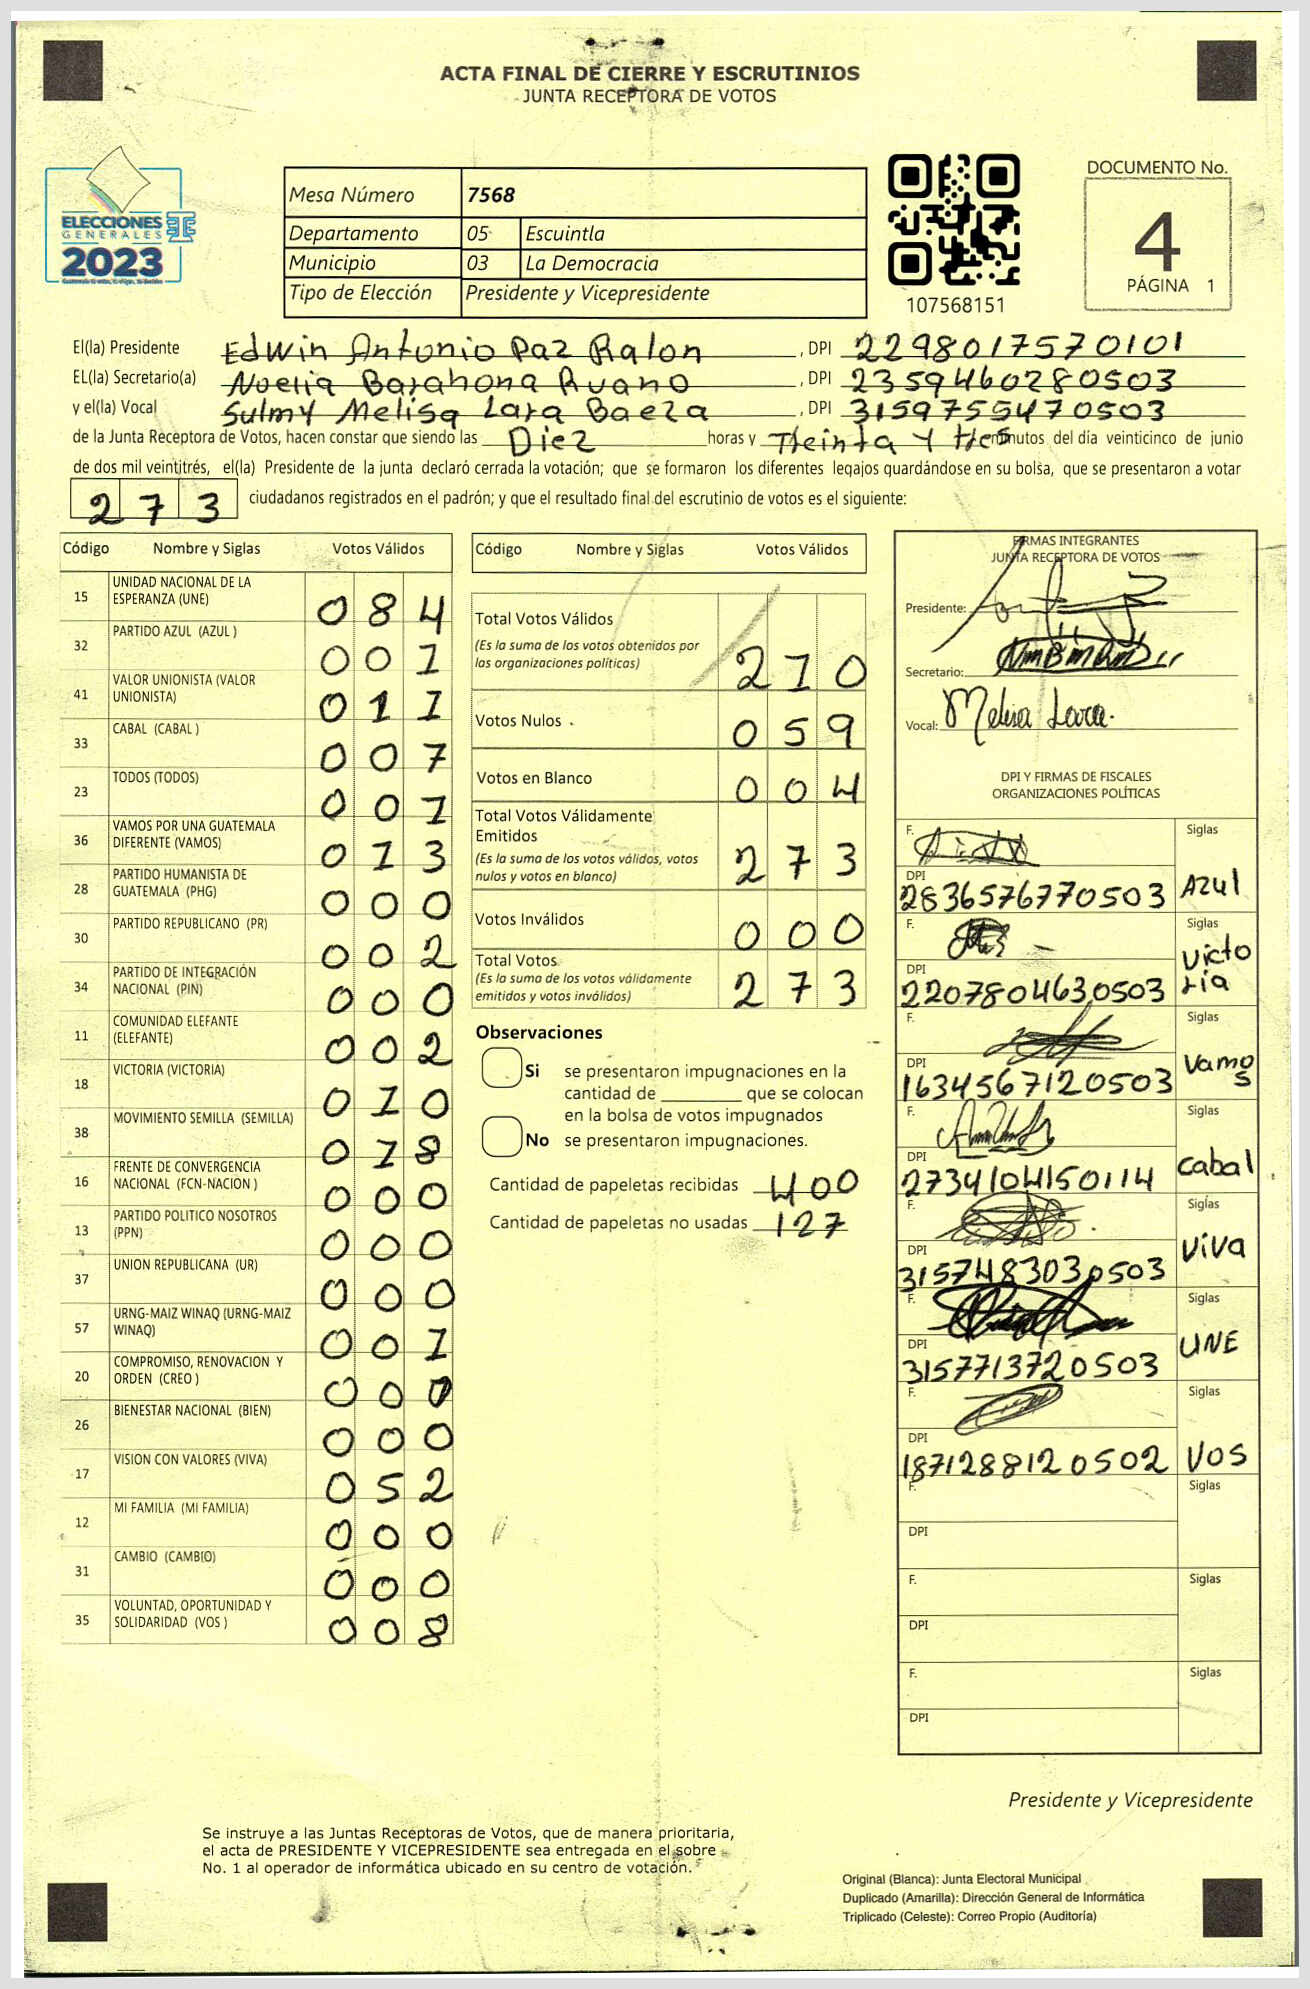 ACTA FINAL DE CIERRE Y ESCRUTINIOS
JUNTA RECEPTORA DE VOTOS
ELECCIONES
GENERALES
2023
Mesa Número 7568
Departamento 05 Escuintla
Municipio 03 La Democracia
Tipo de Elección Presidente y Vicepresidente
107568151
DOCUMENTO No.
4
PÁGINA 1
El(la) Presidente Edwin Antonio Paz Ralon, DPI 2298017570101
EL(la) Secretario(a) Noelia Barahona Ruano, DPI 2359460280503
y el(la) Vocal Sulmy Melisa Lara Baeza, DPI 3159755470503
de la Junta Receptora de Votos, hacen constar que siendo las Diez horas y Treinta y tres minutos del día veinticinco de junio
de dos mil veintitrés, el(la) Presidente de la junta declaró cerrada la votación; que se formaron los diferentes legajos guardándose en su bolsa, que se presentaron a votar
273 ciudadanos registrados en el padrón; y que el resultado final del escrutinio de votos es el siguiente:
Código Nombre y Siglas Votos Válidos
15 UNIDAD NACIONAL DE LA ESPERANZA (UNE) 084
32 PARTIDO AZUL (AZUL ) 001
41 VALOR UNIONISTA (VALOR UNIONISTA) 011
33 CABAL (CABAL ) 007
23 TODOS (TODOS) 001
36 VAMOS POR UNA GUATEMALA DIFERENTE (VAMOS) 013
28 PARTIDO HUMANISTA DE GUATEMALA (PHG) 000
30 PARTIDO REPUBLICANO (PR) 002
34 PARTIDO DE INTEGRACIÓN NACIONAL (PIN) 000
11 COMUNIDAD ELEFANTE (ELEFANTE) 002
18 VICTORIA (VICTORIA) 010
38 MOVIMIENTO SEMILLA (SEMILLA) 018
16 FRENTE DE CONVERGENCIA NACIONAL (FCN-NACION ) 000
13 PARTIDO POLITICO NOSOTROS (PPN) 000
37 UNION REPUBLICANA (UR) 000
57 URNG-MAIZ WINAQ (URNG-MAIZ WINAQ) 001
20 COMPROMISO, RENOVACION Y ORDEN (CREO ) 00
26 BIENESTAR NACIONAL (BIEN) 000
17 VISION CON VALORES (VIVA) 052
12 MI FAMILIA (MI FAMILIA) 000
31 CAMBIO (CAMBIO) 000
35 VOLUNTAD, OPORTUNIDAD Y SOLIDARIDAD (VOS ) 008
Código Nombre y Siglas Votos Válidos
Total Votos Válidos
(Es la suma de los votos obtenidos por
las organizaciones políticas) 210
Votos Nulos 059
Votos en Blanco 004
Total Votos Válidamente
Emitidos
(Es la suma de los votos válidos, votos
nulos y votos en blanco) 273
Votos Inválidos 000
Total Votos
(Es la suma de los votos válidamente
emitidos y votos inválidos) 273
Observaciones
Si se presentaron impugnaciones en la
cantidad de ________ que se colocan
en la bolsa de votos impugnados
No se presentaron impugnaciones.
Cantidad de papeletas recibidas 400
Cantidad de papeletas no usadas 127
FIRMAS INTEGRANTES
JUNTA RECEPTORA DE VOTOS
Presidente:
Secretario:
Vocal: Melisa Lara.
DPI Y FIRMAS DE FISCALES
ORGANIZACIONES POLÍTICAS
F. Siglas
DPI 2836576770503 Azul
F. Siglas
DPI 2207804630503 Victoria
F. Siglas
DPI 1634567120503 Vamos
F. Siglas
DPI 2734104150114 cabal
F. Siglas
DPI 3157483030503 viva
F. Siglas
DPI 3157713720503 UNE
F. Siglas
DPI 1871288120502 VOS
F. Siglas
DPI
F. Siglas
DPI
F. Siglas
DPI
Presidente y Vicepresidente
Se instruye a las Juntas Receptoras de Votos, que de manera prioritaria,
el acta de PRESIDENTE Y VICEPRESIDENTE sea entregada en el sobre
No. 1 al operador de informática ubicado en su centro de votación.
Original (Blanca): Junta Electoral Municipal
Duplicado (Amarilla): Dirección General de Informática
Triplicado (Celeste): Correo Propio (Auditoría)